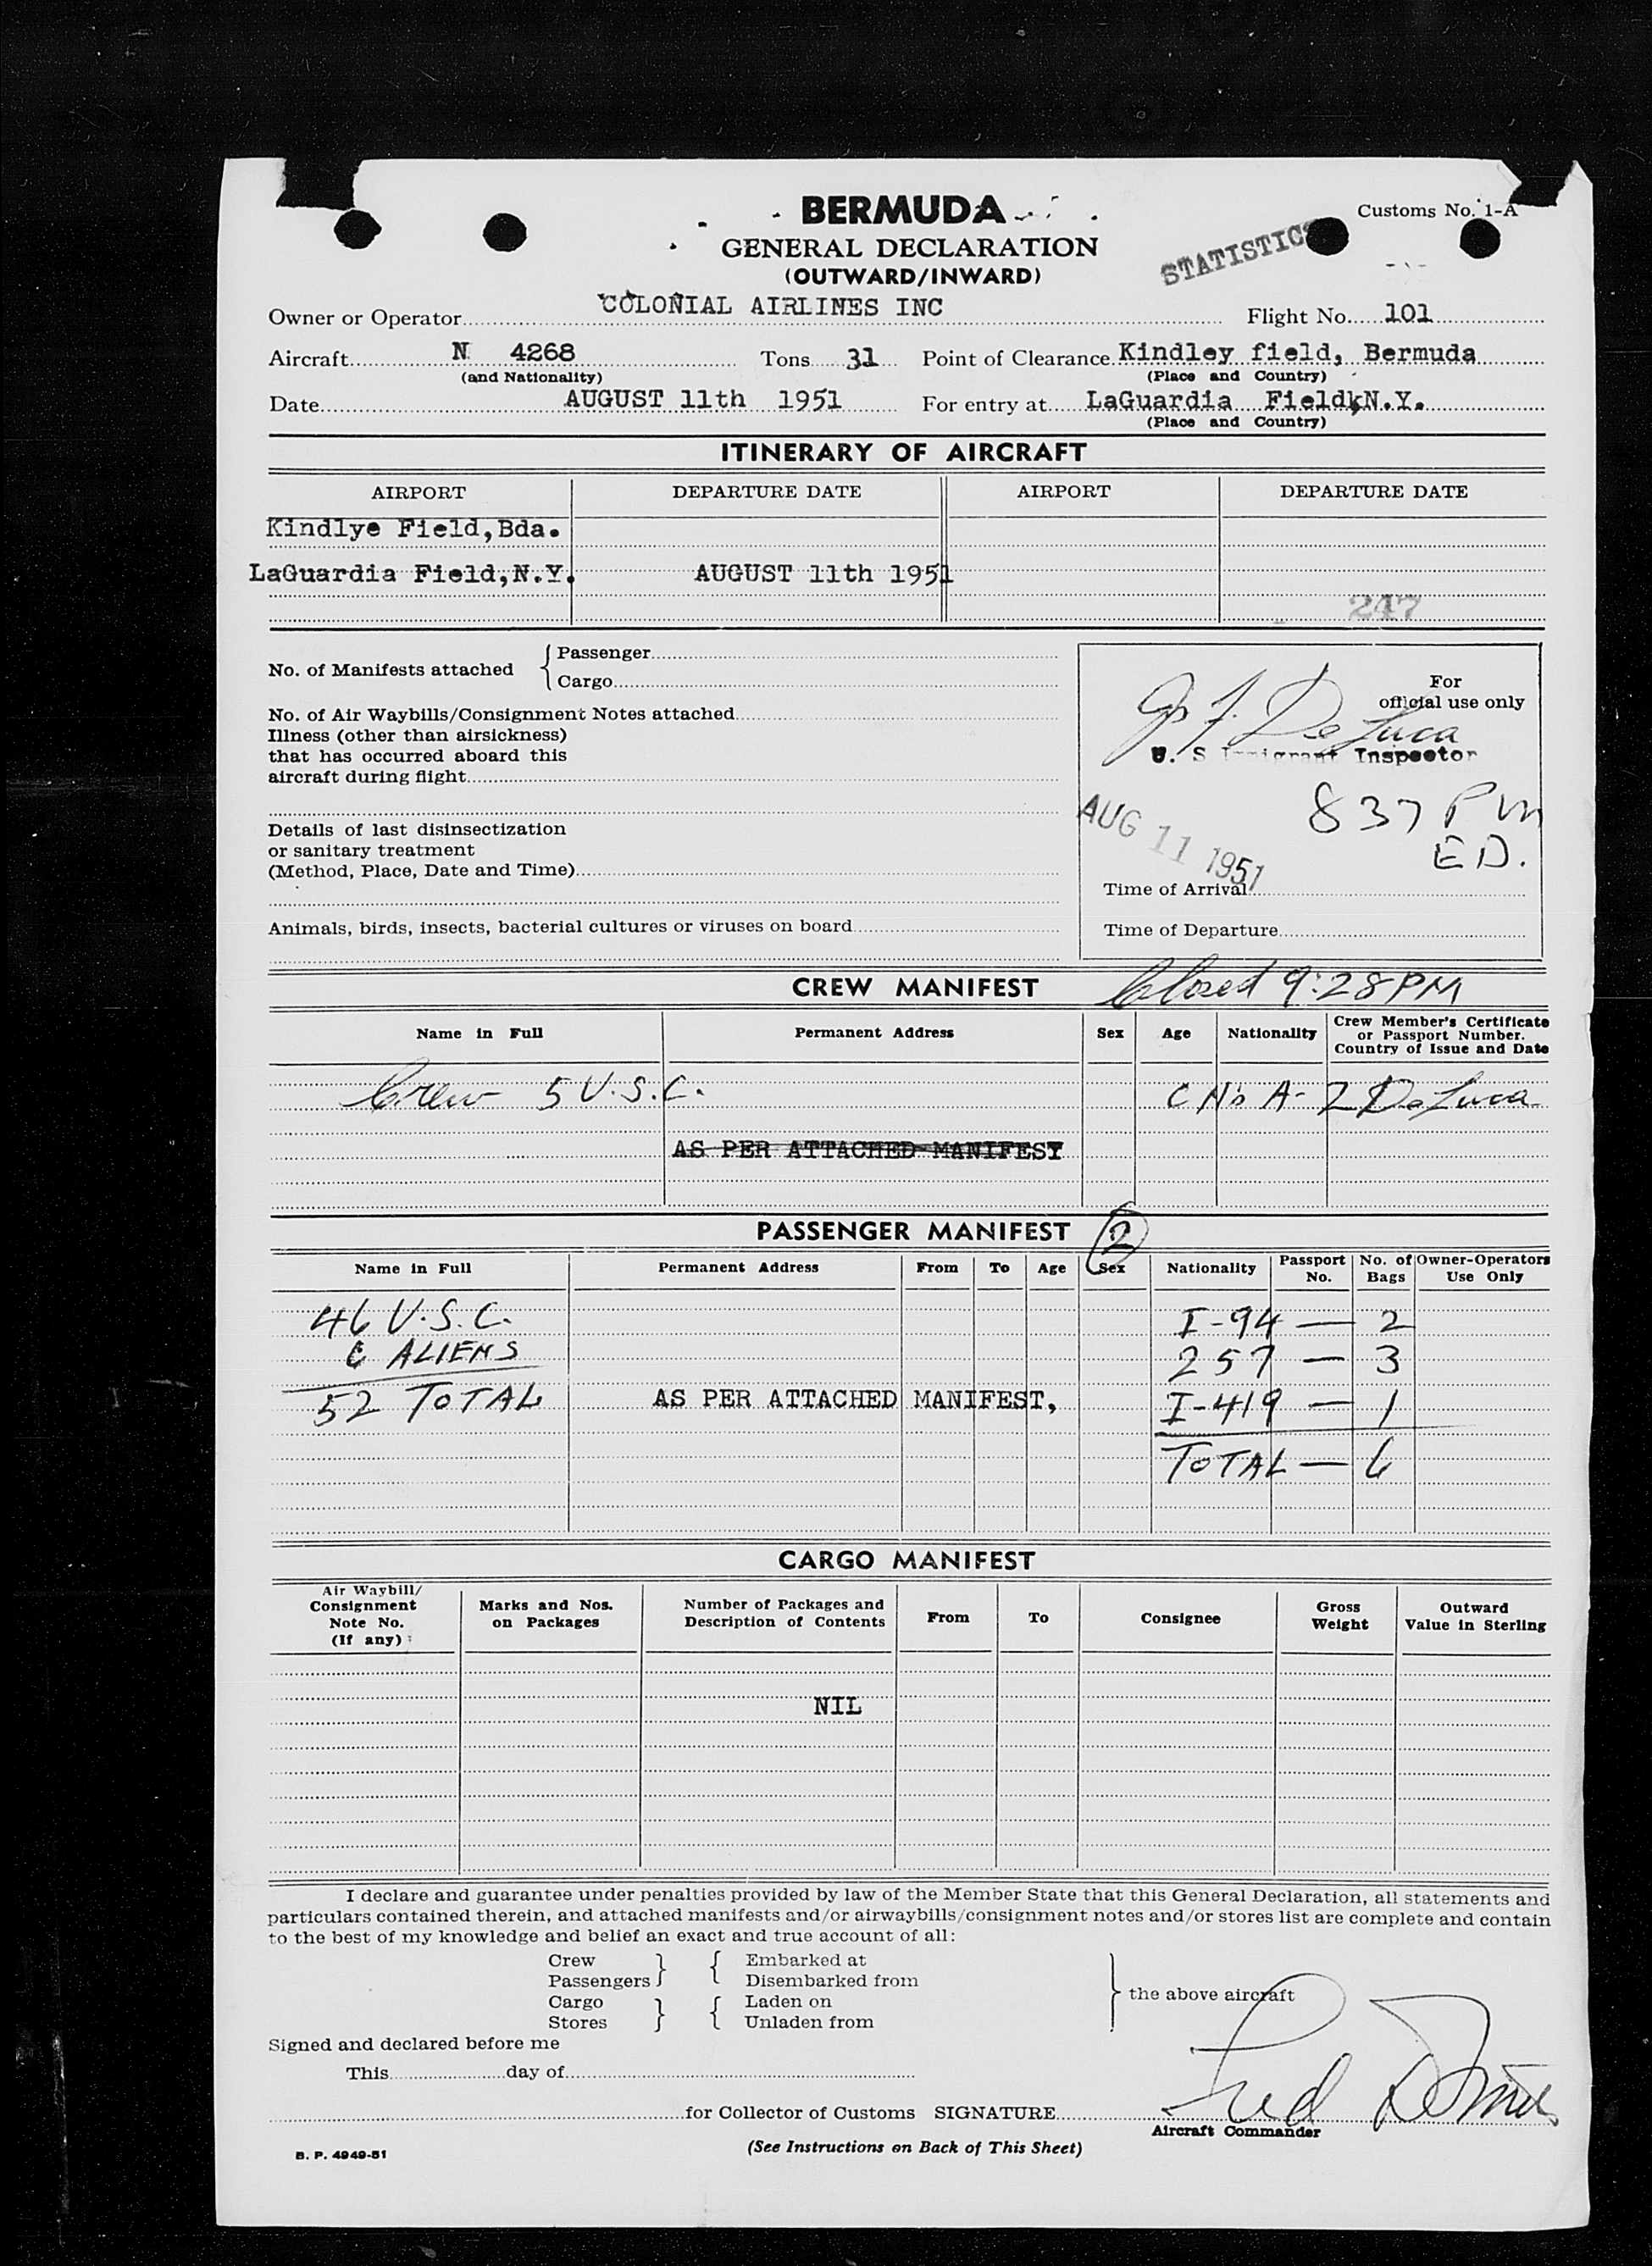 BERMUDA
Customs No. 1-A
GENERAL DECLARATION
STATISTICS
(OUTWARD/INWARD)
COLONIAL AIRLINES INC
Owner or Operator Flight No. 101
Aircraft N 4268 Tons 31 Point of Clearance Kindley field, Bermuda
(and Nationality) (Place and Country)
Date AUGUST 11th 1951 For entry at LaGuardia Field,N.Y.
(Place and Country)
ITINERARY OF AIRCRAFT
AIRPORT DEPARTURE DATE AIRPORT DEPARTURE DATE
Kindlye Field,Bda.
LaGuardia Field,N.Y. AUGUST 11th 1951
247
No. of Manifests attached { Passenger
Cargo
For
official use only
No. of Air Waybills/Consignment Notes attached
Illness (other than airsickness)
that has occurred aboard this
aircraft during flight
De Luca
U. S Immigrant Inspector
837 PM
ED.
AUG 11 1951
Details of last disinsectization
or sanitary treatment
(Method, Place, Date and Time)
Time of Arrival
Animals, birds, insects, bacterial cultures or viruses on board
Time of Departure
CREW MANIFEST Closed 9:28 PM
Name in Full Permanent Address Sex Age Nationality Crew Member's Certificate
or Passport Number.
Country of Issue and Date
Crew 5 U.S.C. De Luca
AS PER ATTACHED MANIFEST
PASSENGER MANIFEST 2
Name in Full Permanent Address From To Age Sex Nationality Passport No. No. of Bags Owner-Operators Use Only
46 U.S.C. I-94 — 2
6 ALIENS 257 — 3
52 TOTAL AS PER ATTACHED MANIFEST, I-419 — 1
TOTAL — 6
CARGO MANIFEST
Air Waybill/
Consignment
Note No.
(If any)
Marks and Nos.
on Packages
Number of Packages and
Description of Contents
From To Consignee
Gross
Weight
Outward
Value in Sterling
NIL
I declare and guarantee under penalties provided by law of the Member State that this General Declaration, all statements and
particulars contained therein, and attached manifests and/or airwaybills/consignment notes and/or stores list are complete and contain
to the best of my knowledge and belief an exact and true account of all:
Crew } { Embarked at
Passengers Disembarked from
} the above aircraft
Cargo } { Laden on
Stores Unladen from
Signed and declared before me
This day of
for Collector of Customs SIGNATURE
Aircraft Commander
(See Instructions on Back of This Sheet)
B. P. 4949-51